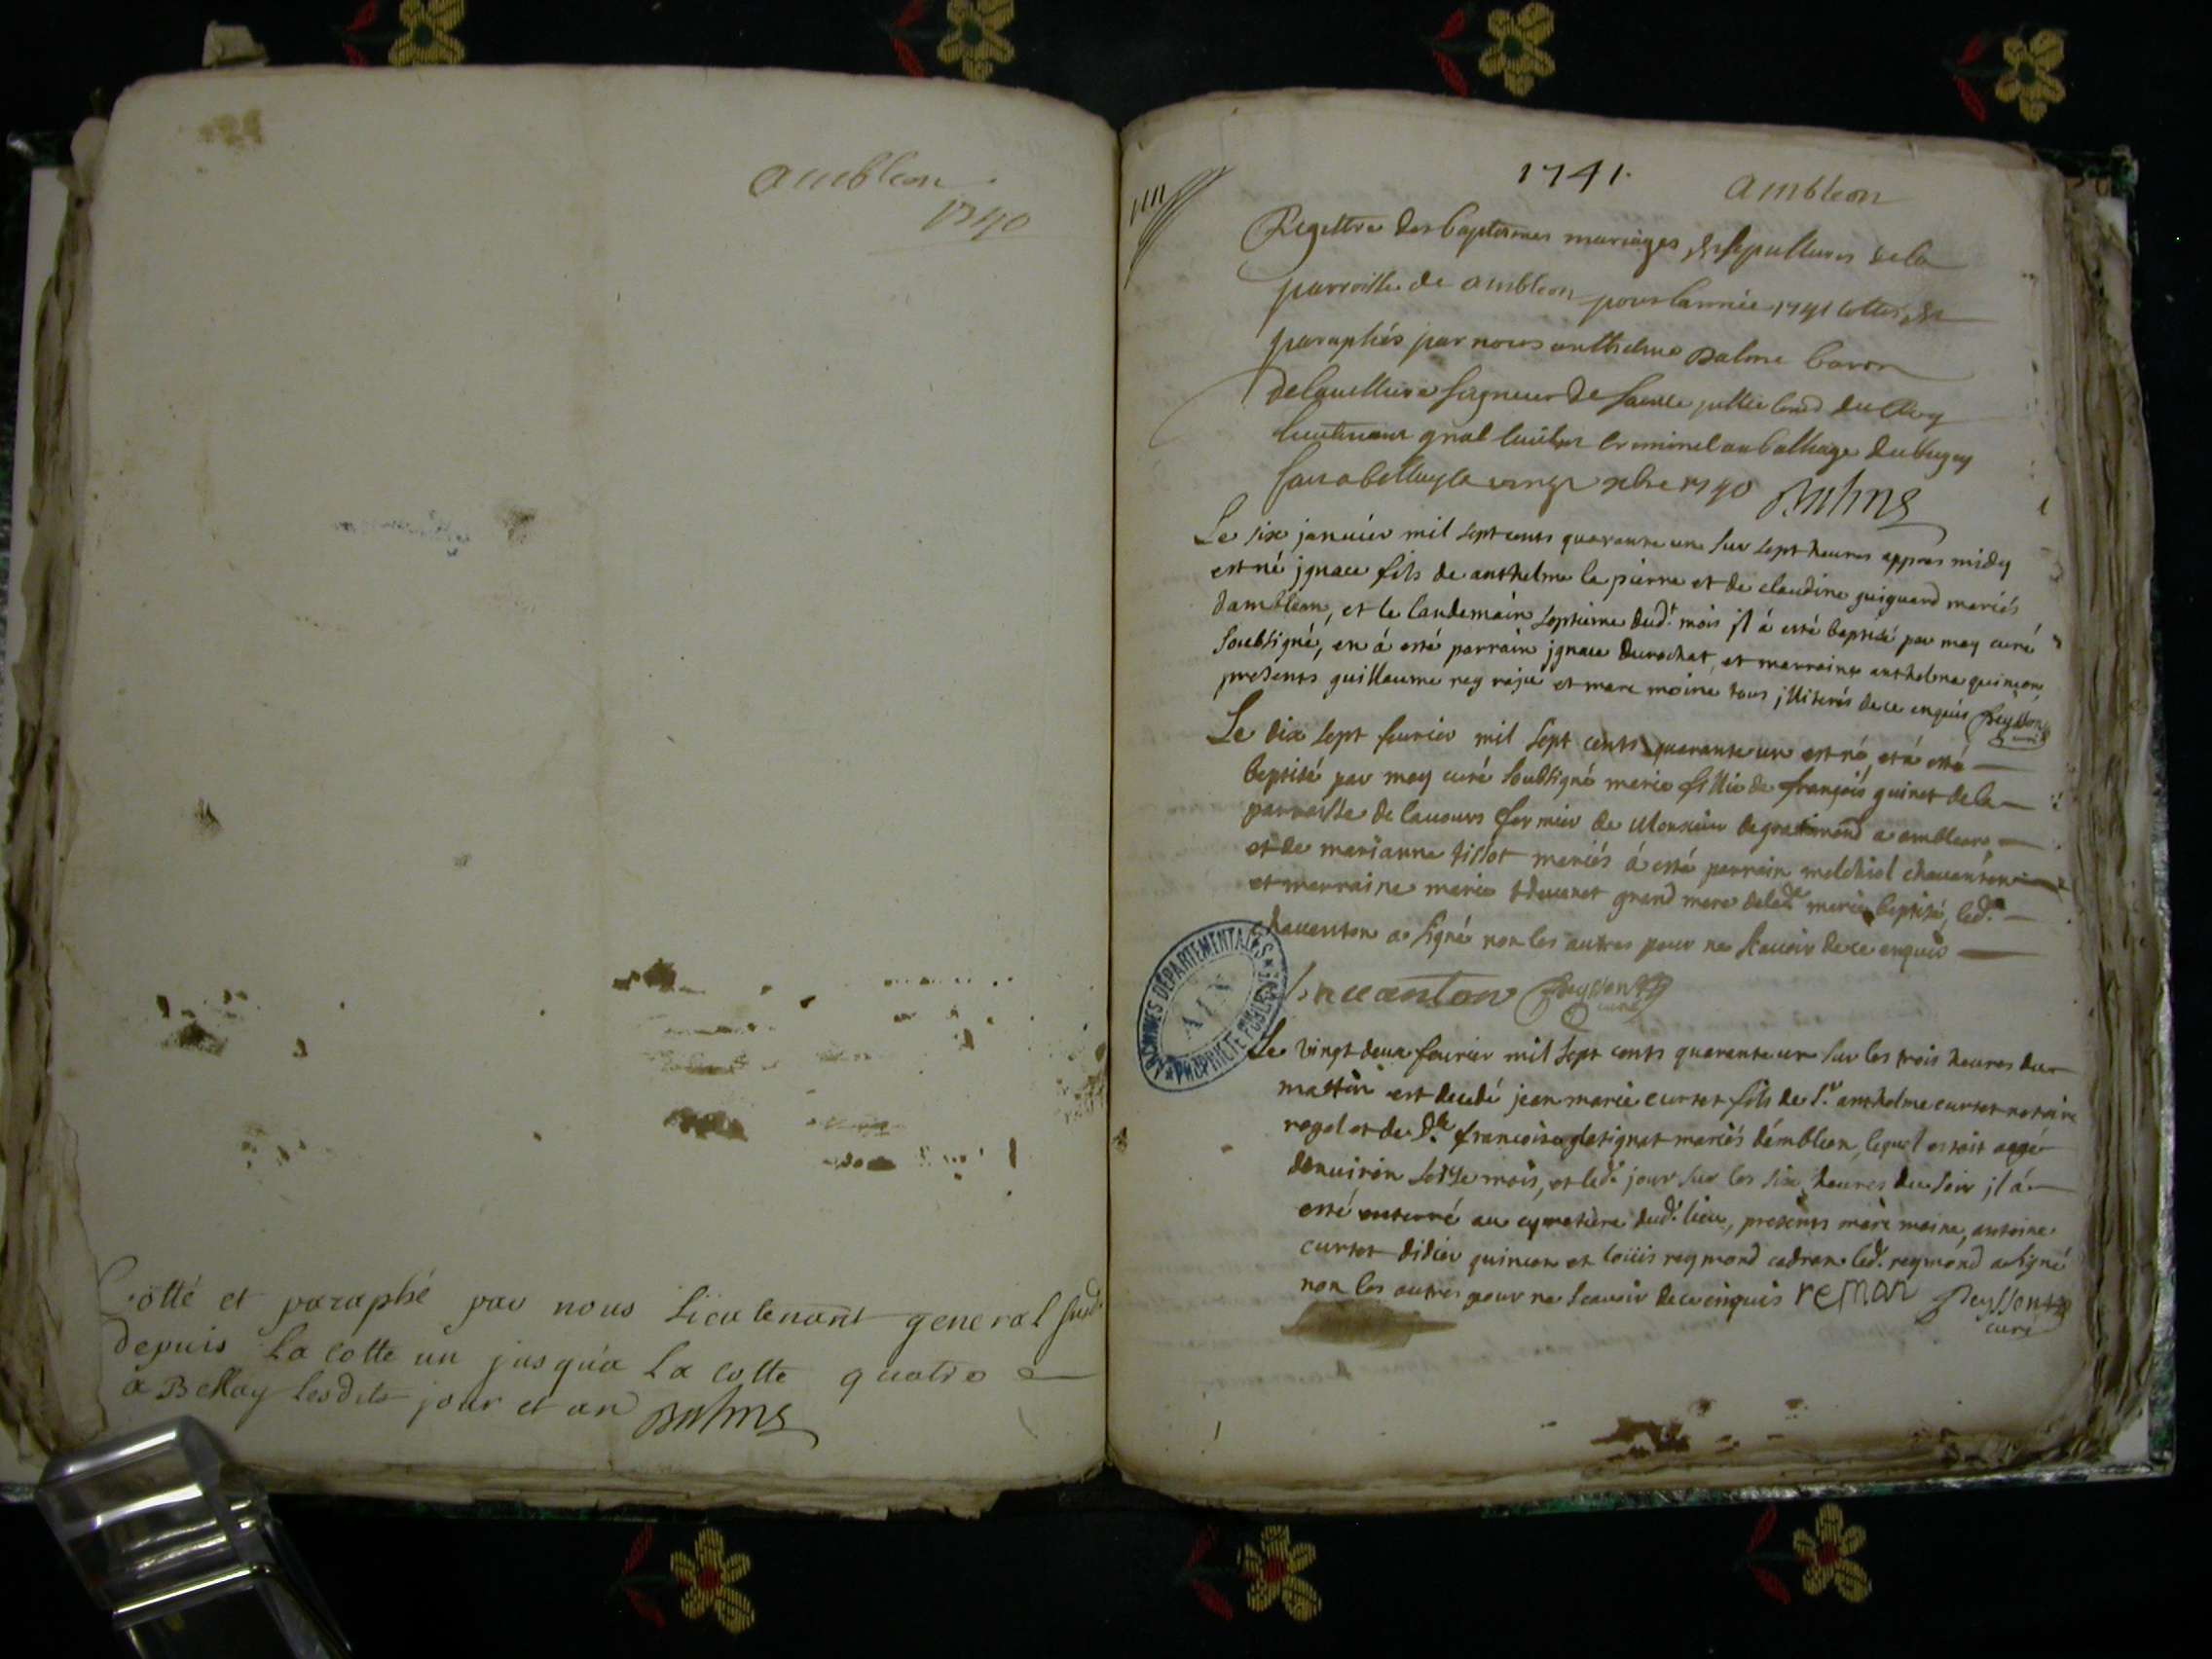 ambleon
1740
Cotté et paraphé par nous Lieutenant general susd.
depuis la cotte un jusqu'a la cotte quatre
a Bellay lesdits jour et an Balme
1741.
ambleon
Regettre des baptesmes mariages et sepultures de la
parroisse de ambleon pour lannée 1741 cottés et
paraphés par nous anthelme Balme baron
seigneur de du Roy
lieutenant gnal criminel au balliage du bugey
fait a belley le vingt xbre 1740 Balme
Le six janvier mil sept cents quarante un sur sept heures appres midy
est né jgnace fils de anthelme la pierre et de claudine guiguard mariés
dambleon, et le landemain septieme dud.t mois jl á esté baptisé par moy curé
soubsigné, en á esté parrain jgnace durochat, et marraine anthelme quincon
presents guillaume rey et marc moine tous jlliterés de ce enquis Peysson
curé
Le dix sept feurier mil sept cents quarante un est né, et á esté
baptisé par moy curé soubsigné marie fillie de françois guinet de la
parroisse de lauours fermier de Monsieur a ambleon,
et de marianne tissot mariés á esté parrain melchiol chauanton
et marraine marie theuenet grand mere de lad.e marie baptisé, led.t
chauenton a signé non les autres pour ne scauoir de ce enquis
Peysson
curé
ARCHIVES DÉPARTEMENTALES
AIN
PROPRIÉTÉ PUBLIQUE
Le vingt deux feurier mil sept cents quarante un sur les trois heures du
mattin est decedé jean marie curtet fils de S.r anthelme curtet notaire
royal et de D.lle francoise mariés dámbleon, lequel estoit agge
denuiron seize mois, et led.t jour sur les six heures du soir jl á
esté enterré au cymetiere dud.t lieu, presents marc moine, antoine
curtet didier quincon et loüis reymond led.t reymond a signé
non les autres pour ne scauoir de ce enquis remon Peysson
curé